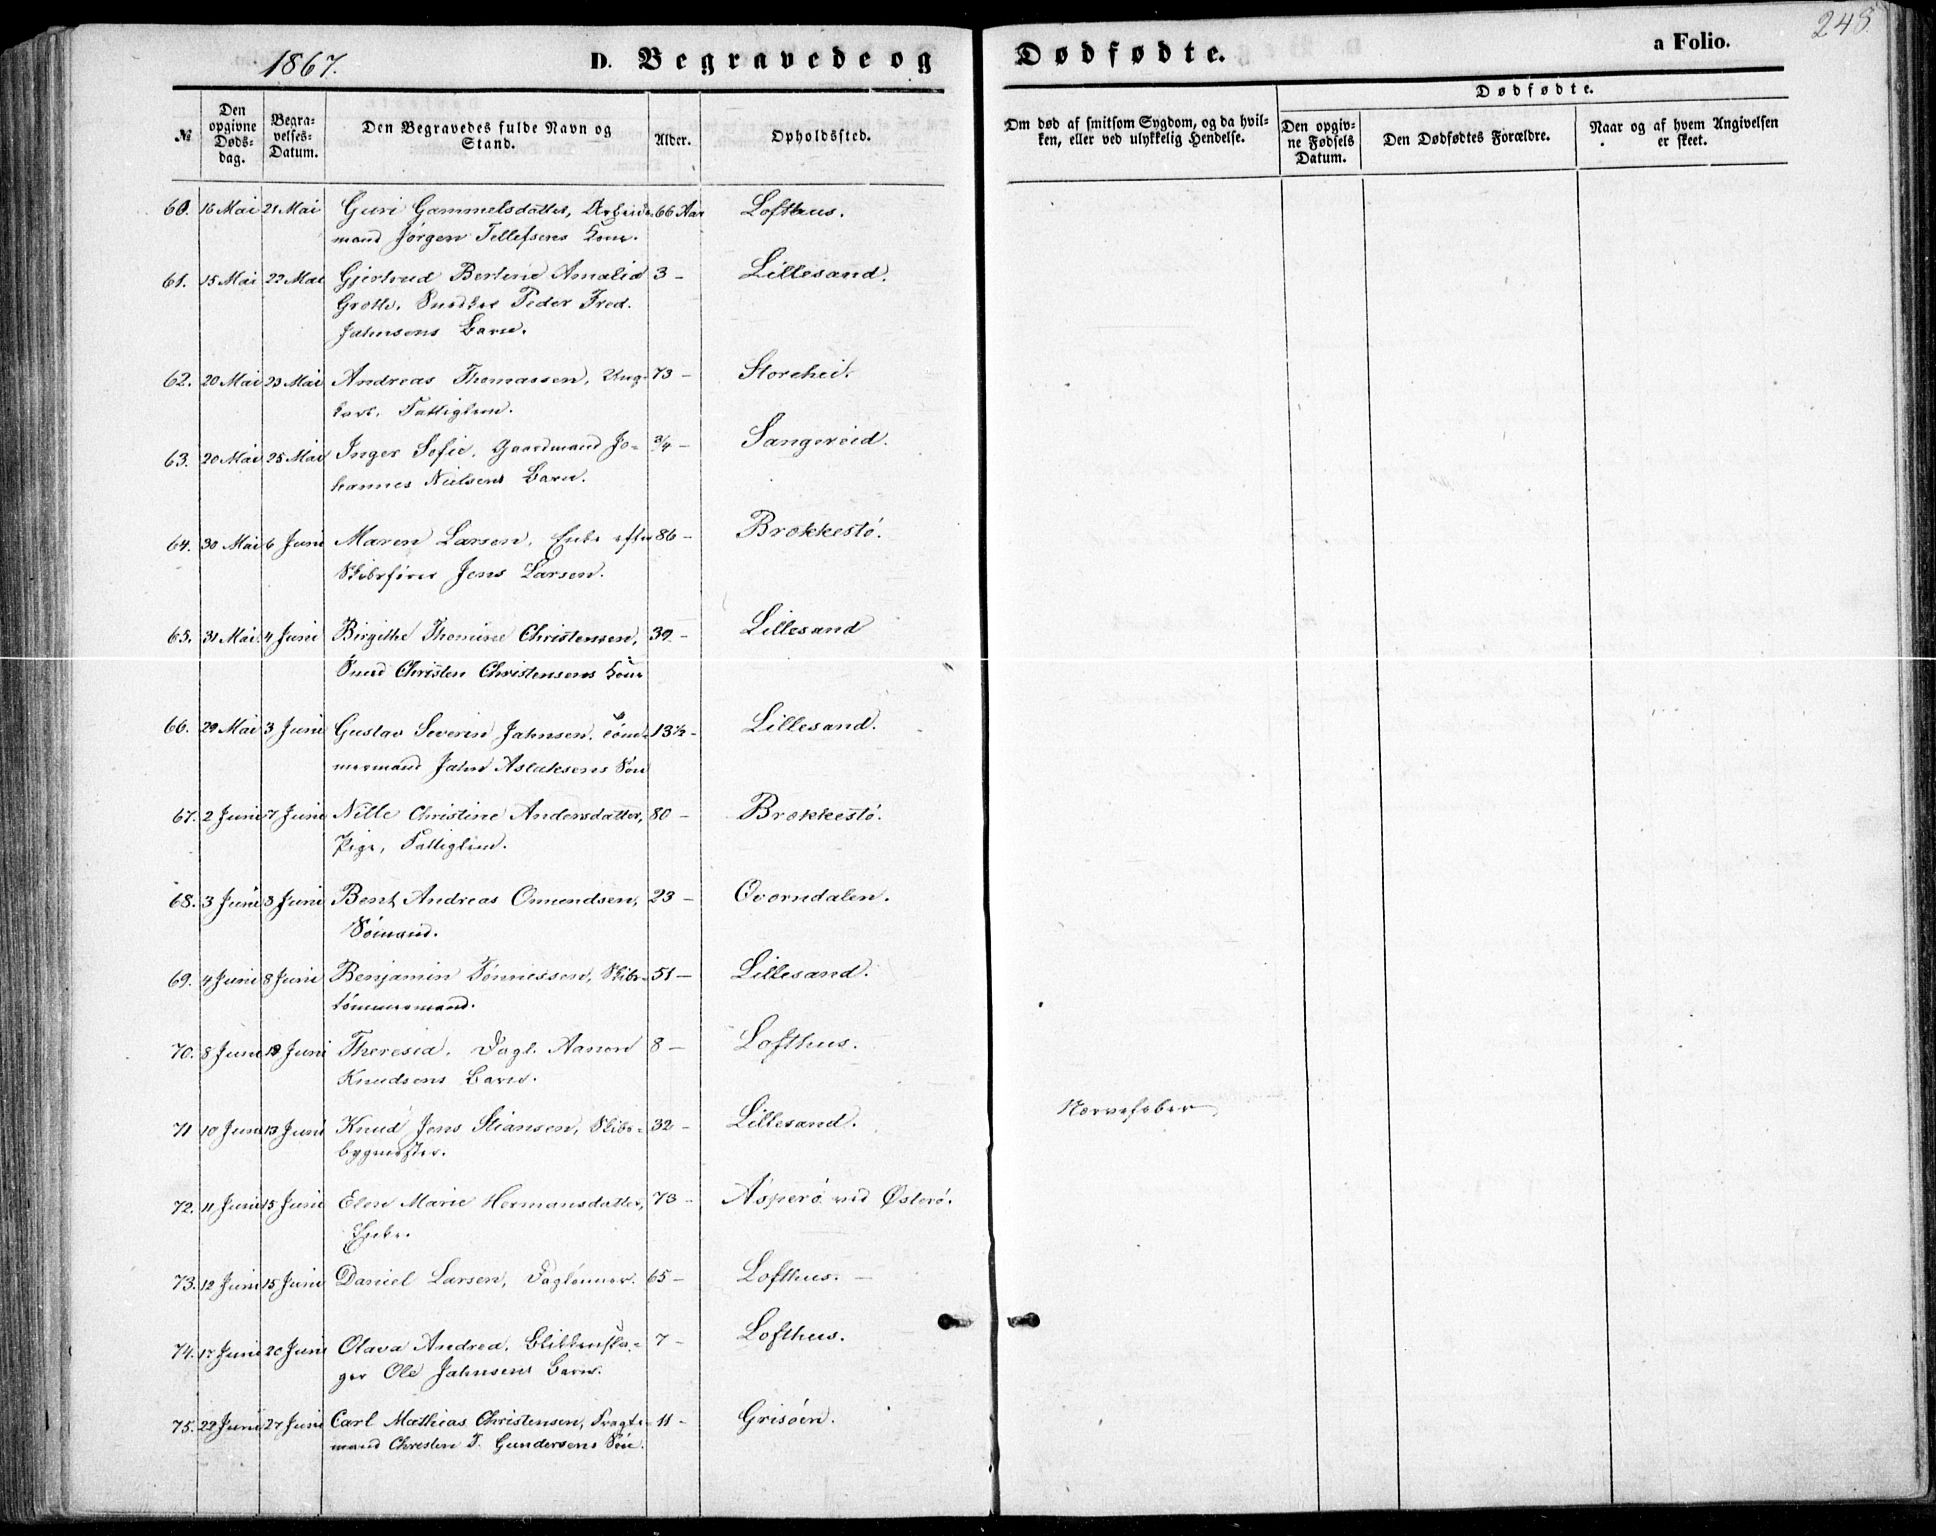 248.
1867.
D. Begravede og Dødfødte.
a Folio.
№
Den opgivne Døds-dag.
Begra-velses-Datum.
Den Begravedes fulde Navn og Stand.
Alder.
Opholdssted.
Om død af smitsom Sygdom, og da hvil-ken, eller ved ulykkelig Hendelse.
Dødfødte.
Den opgiv-ne Fødsels Datum.
Den Dødfødtes Forældre.
Naar og af hvem Angivelsen er skeet.
60. 16 Mai 21 Mai Guri Gammelsdatter, Arbeids- 66 Aar Lofthus.
mand Jørgen Tellefsens Kone.
61. 15 Mai 22 Mai Gjertrud Bertine Amalia 3 – Lillesand.
Grotte, Snedker Peder Fred.
Jahnsens Barn.
62. 20 Mai 23 Mai Andreas Thomassen, Ung- 73 – Storehei.
karl, Fattiglem.
63. 20 Mai 25 Mai Inger Sofie, Gaardmand Jo- 3/4 – Sangereid.
hannes Nielsens Barn.
64. 30 Mai 6 Juni Maren Larsen, Enke efter 86 – Brækkestø.
Skibsfører Jens Larsen.
65. 31 Mai 4 Juni Birgithe Thomine Christensen, 39 – Lillesand
Smed Christen Christensens Kone
66. 29 Mai 3 Juni Gustav Severin Jahnsen, Tøm- 13½ – Lillesand.
mermand Jahn Aslaksens Søn
67. 2 Juni 7 Juni Nille Christine Andersdatter, 80 – Brækkestø.
Pige, Fattiglem.
68. 3 Juni 8 Juni Bent Andreas Omundsen, 23 – Qvorndalen.
Sømand.
69. 4 Juni 8 Juni Benjamin Tønnessen, Skibs- 51 – Lillesand.
tømmermand.
70. 8 Juni 13 Juni Theresia, Dagl. Aanon 8 – Lofthus.
Knudsens Barn.
71 10 Juni 13 Juni Knud Jens Stiansen, Skibs- 32 – Lillesand. Nervefeber
bygmester.
72. 11 Juni 15 Juni Elen Marie Hermansdatter, 73 – Asperø ved Østerø.
Enke.
73. 12 Juni 15 Juni Daniel Larsen, Daglønner. 65 – Lofthus. –
74. 17 Juni 20 Juni Olava Andrea, Blikkensla- 7 – Lofthus.
ger Ole Jahnsens Barn.
75. 22 Juni 27 Juni Carl Mathias Christensen, Fragte- 11 – Grisøen.
mand Christen T. Gundersens Søn.